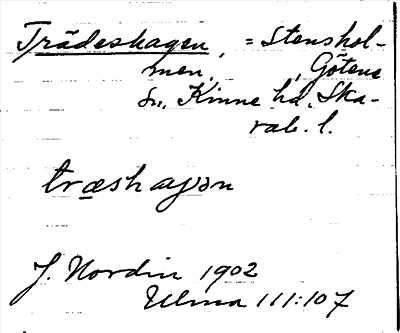 Trädeshagen, = Stenshol-
men, , Götene
sn, Kinne hd, Ska-
rab. l.
træshagən
J. Nordin 1902
Ulma 111:107